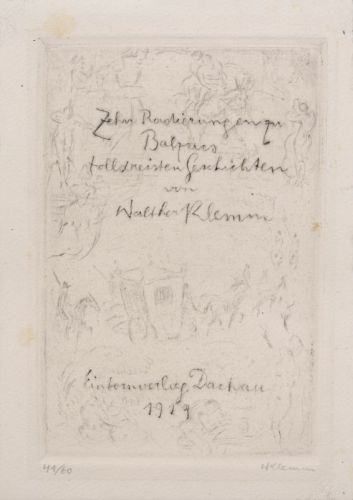 Zehn Radierungen zu
Balzacs
tolldreisten Geschichten
von
Walther Klemm
Einhornverlag Dachau
1919
WKlemm